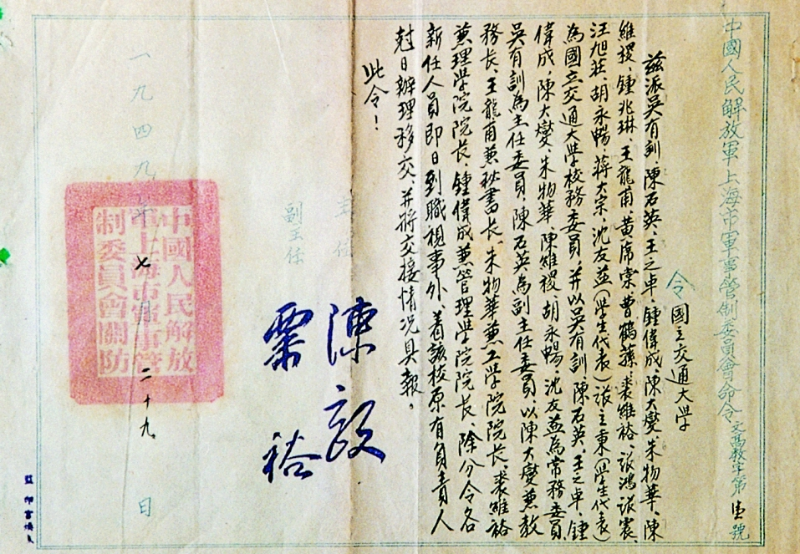 中國人民解放軍上海市軍事管制委員會命令 文高教字第壹號
令 國立交通大學
茲派吳有訓、陳石英、王之卓、鍾偉成、陳大燮、朱物華、陳
維稷、鍾兆琳、王龍甫、黃席棠、曹鶴蓀、裘維裕、張鴻、張震、
汪旭莊、胡永暢、蔣大宗、沈友益(學生代表)張立秉(學生代表)
為國立交通大學校務委員，并以吳有訓、陳石英、王之卓、鍾
偉成、陳大燮、朱物華、陳維稷、胡永暢、沈友益為常務委員
吳有訓為主任委員，陳石英為副主任委員，以陳大燮兼教
務長，王龍甫兼秘書長，朱物華兼工學院院長，裘維裕
兼理学院院長，鍾偉成兼管理学院院長，除分令各
新任人員即日到職視事外，着該校原有負責人
尅日辦理移交，并將交接情况具報。
此令！
主任 陳毅
副主任 粟裕
一九四九年七月二十九日
中國人民解放
軍上海市軍事管
制委員會關防